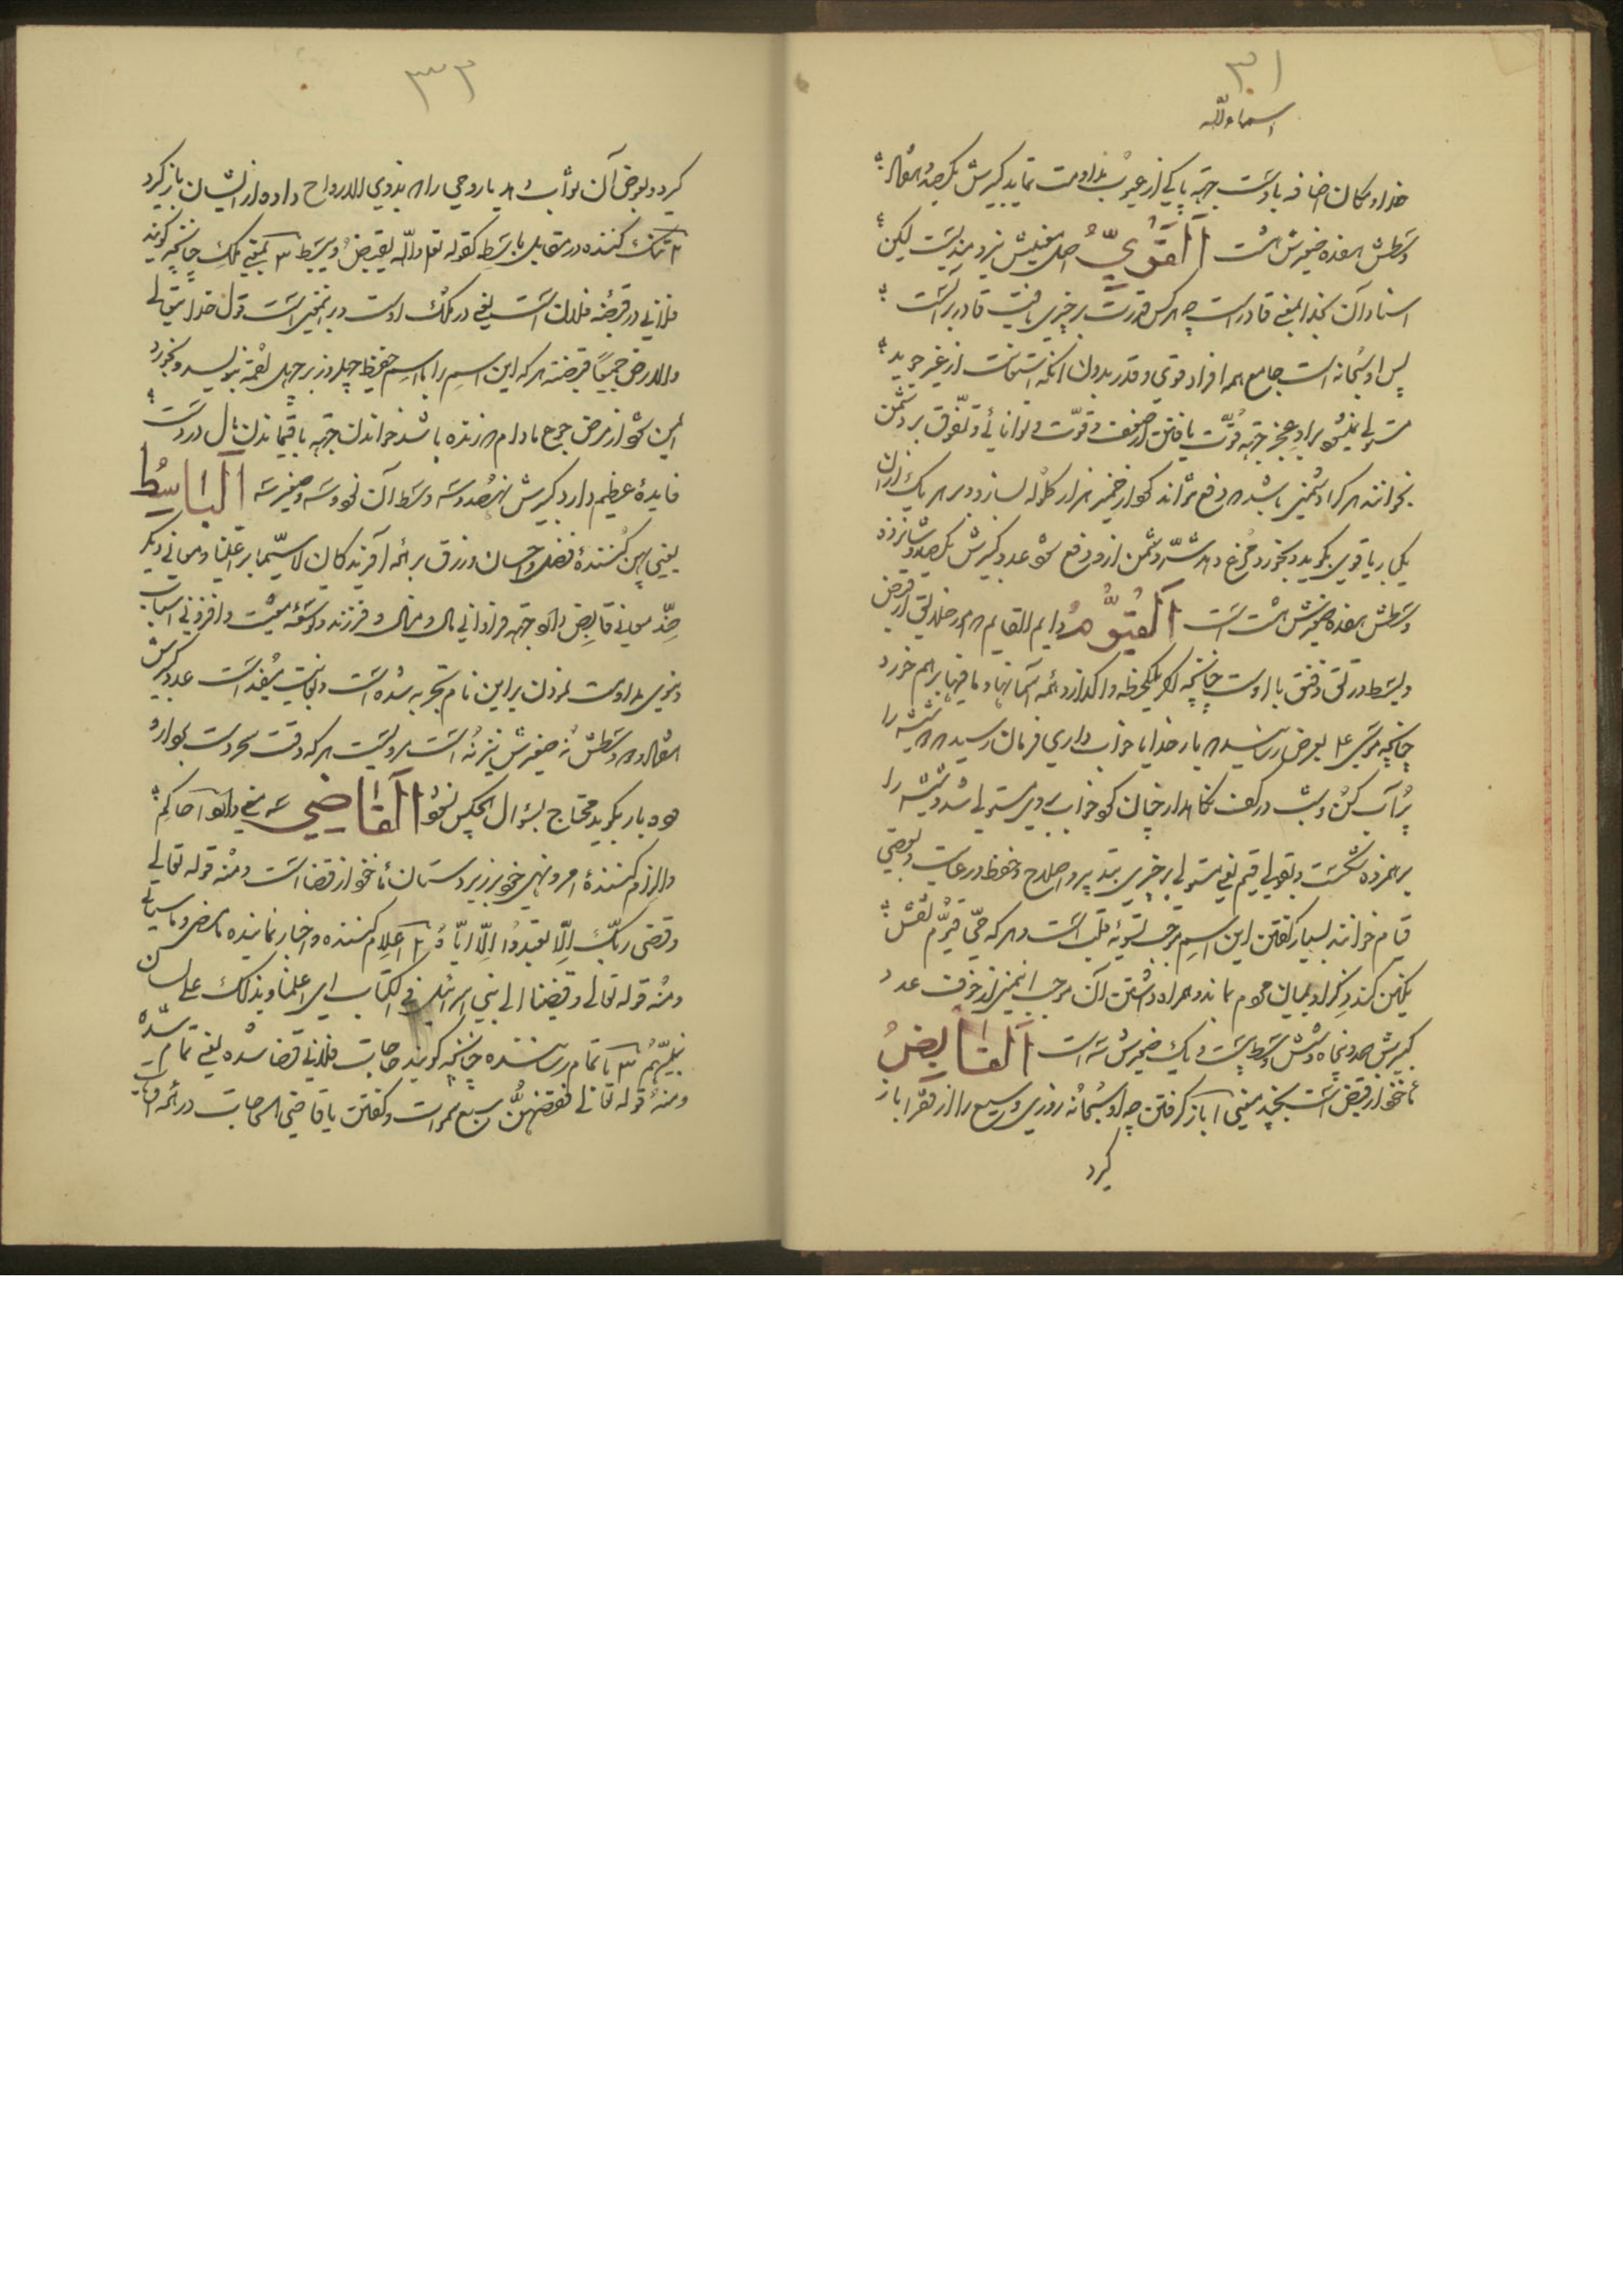 ۳۱
اسماء الله
خدا و مکان اضافه باوست جهة پاکی از عیوب مداومت نماید کبیرش یکصد
وسطش هفده صغیرش هشت اَلقَوِيُّ اصل معنیش نیرومندیست لیکن
اسناد آن بخدا بمعنی قادر است چه هرکس قدرت بر چیزی یافت قادر بر است
پس او سبحانه است جامع همه افراد قوی و قدر بدون آنکه استعانت از غیر جوید
مستولی نمیشود براو عجز جهة قوّت یافتن از ضعف و قوّت و توانائی و تفوّق بر دشمن
بخوانند هرکرا دشمنی باشد که دفع نتواند کرد از خمیر هزار کلوله بسازد و بر هریک از آن
یکبار یا قوی بگوید و بخورد مرغ دهد شرّ دشمن ازو دفع شود عدد کبیرش یکصد و شانزده
وسطش هفده صغیرش هشت است اَلقَیُّومُ دایم القایم که در خلایق از قبض
وبسط ورتق وفتق با اوست چنانچه اگر یکلحظه واگذارد همه آسمانها و مافیها برهم خورد
چنانچه موسی ع بعرض رسانید که بار خدایا خواب داری فرمان رسید که شیشه را
پر آب کن و شب در کف نگاهدار چنان کرد خواب بر وی مستولی شد و شیشه را
برهم زده شکست و بقولی قیم یعنی مستولی بر چیزی بتدبیر و اصلاح و حفظ و رعایت و بعضی
قیام خوانند بسیار گفتن این اسم موجب تسویه قلب است و هرکه حیّ قیّوم نقش
نگین کند ذکر او بمیان مردم بماند و همراه داشتن آن موجب ایمنی از خوف عدد
کبیرش صد و پنجاه و شش وسط بیست و یک صغیرش سه است اَلقَابِضُ
مأخوذ از قبض است بچند معنی ۱ باز گرفتن چه او سبحانه روزی وسیع را از فقرا باز
گیرد
۳۲
گیرد و بعوض آن ثواب دهد یا روحی را که بذوی الارواح داده از ایشان باز گیرد
۲ تنگ کننده در مقابل باسط کقوله تع والله یقبض ویبسط ۳ بمعنی ملک چنانچه گویند
فلانی در قبضه فلان است یعنی در ملک اوست و برین معنی است قول خدایتعالی
والارض جمیعاً قبضته هرکه این اسم را با اسم حفیظ چهل روز بر چهل لقمه بنویسد و بخورد
ایمن شود از مرض جوع مادام که زنده باشد خواندن جهة باقیماندن مال در دست
فایدهٔ عظیم دارد کبیرش نهصد و سه وسط آن نود و سه و صغیر سه اَلبَاسِطُ
یعنی پهن کنندهٔ فضل و احسان و رزق بر همه آفریدگان لاسیّما بر اغنیا و معانی دیگر
ضدّ معانی قابض دارد جهة فراوانی مال و منال و فرزند و توسعه معیشت و افزونی اسباب
دنیوی مداومت نمودن بر این نام تجربه شده است و بغایت مفید است عدد کبیرش
هفتاد و دو وسطش نه صغیرش نیز نُه است مرویست هرکه وقت سحر دست بردارد
ده بار بگوید محتاج بسؤال هیچکس نشود اَلقَاضِي سه معنی دارد ۱ حاکم
و الزام کنندهٔ امر و نهی خود بر زیردستان مأخوذ از قضا است و منه قوله تعالی
وقضی ربّک الّا تعبدوا الّا ایّاه ۲ اعلام کننده و اخبار نماینده ماضی و ماسیأتی
ومنه قوله تعالی وقضینا الی بنی اسرائیل فی الکتاب ای اعلمناه بذلک علی لسان
نبیّهم ۳ باتمام رساننده چنانچه گویند حاجت فلانی قضا شده یعنی تمام شده
ومنه قوله تعالی فقضیهنّ سبع سموات و گفتن یا قاضی الحاجات در همه اوقات